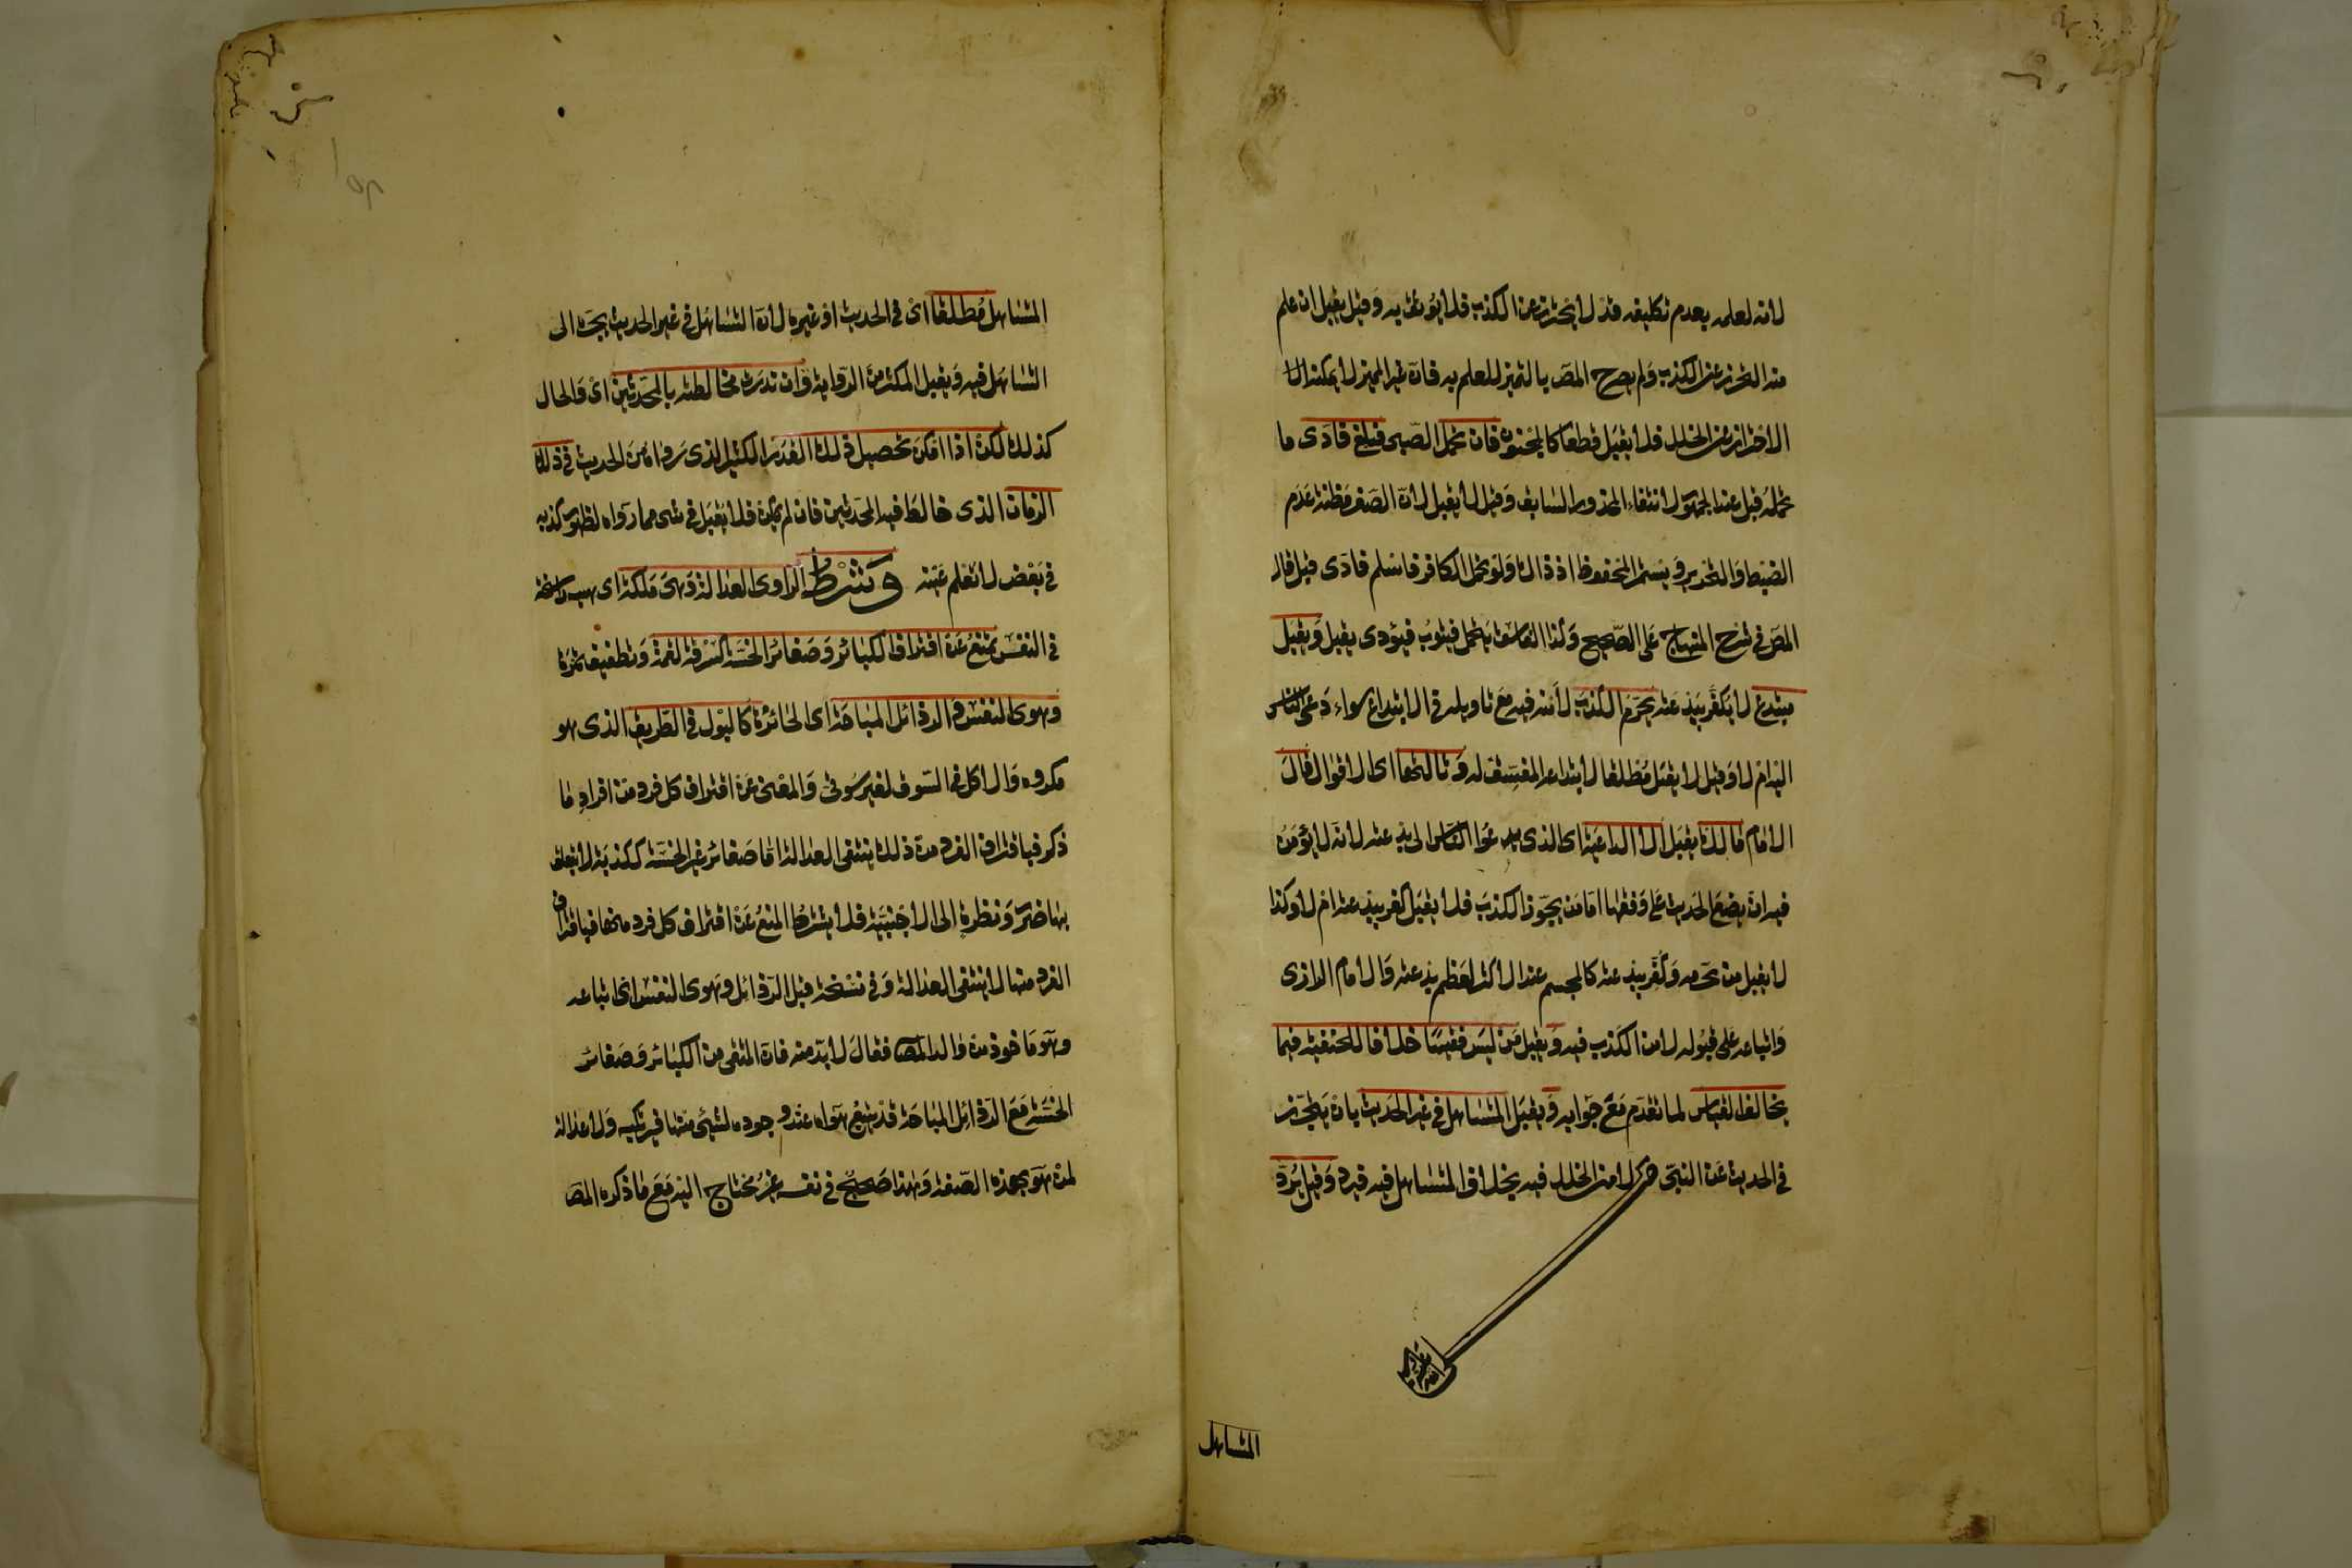 لأنه لعلمه بعدم تكليفه قد لا يحترز عن الكذب فلا يوثق به وقيل يقبل ان علم
منه التحرز عن الكذب ولم يصرح المصّ بالتميز للعلم به فان غير المميز لا يمكنه الا
الاحتراز عن الخلل فلا يقبل قطعا كالمجنون فان تحمل الصبى فبلغ فادى ما
تحمله قبل عند الجمهور لانتفاء المحذور السابق وقيل لا يقبل لان الصغر مظنة عدم
الضبط والتحرير ويستمر المحفوظ اذ ذاك ولو تحمل الكافر فاسلم فادى قبل قال
المصّ فى شرح المنهاج على الصحيح وكذا الفاسق يتحمل فيتوب فيؤدى يقبل ويقبل
مبتدع لا يكفر ببدعته يحرم الكذب لأمنه فيه مع تاويله فى الابتداع سواء دعى الناس
اليه ام لا وقيل لا يقبل مطلقا لابتداعه المفسق له وثالثها اى الاقوال قال
الامام مالك يقبل الا الداعية اى الذى يدعوا الناس الى بدعته لانه لا يؤمن
فيه ان يضع الحديث على وفقها اما من يجوّز الكذب فلا يقبل كفر ببدعته ام لا وكذا
لا يقبل من يحرمه وكفر ببدعته كالمجسم عند الاكثر لعظم بدعته والامام الرازى
واتباعه على قبوله لامن الكذب فيه ويقبل من ليس فقيها خلافا للحنفية فيما
يخالف القياس لما تقدم مع جوابه ويقبل المتساهل فى غير الحديث بان يتحرز
فى الحديث عن النبى لا من الخلل فيه بخلاف المتساهل فيه فيرد وقيل يرد
المتساهل
المتساهل مطلقا اى فى الحديث او غيره لان التساهل فى غير الحديث يجرّ الى
التساهل فيه ويقبل المكثر من الرواية وان ندرت مخالطته بالمحدثين اى والحال
كذلك لكن اذا امكن تحصيل ذلك القدر الكثير الذى رواه من الحديث فى ذلك
الزمان الذى خالط فيه المحدثين فان لم يمكن فلا يقبل فى شى مما رواه لظهور كذبه
فى بعض لا تعلم عينه وشرط الراوى العدالة وهى ملكة اى هيئة راسخة
فى النفس تمنع عن اقتراف الكبائر وصغائر الخسة كسرقة لقمة وتطفيف تمرة
وهوى النفس والرذائل المباحة اى الجائزة كالبول فى الطريق الذى هو
مكروه والاكل فى السوق لغير سوقى والمعنى عن اقتراف كل فرد من افراد ما
ذكر فباقتراف الفرد من ذلك ينتفى العدالة اما صغائر غير الخسة ككذبة لا يتعلق
بها ضرر ونظرة الى الاجنبية فلا يشترط المنع عن اقتراف كل فرد منها فباقتراف
الفرد منها لا ينتفى العدالة وفى نسخة قبل الرذائل وهوى النفس اى اتباعه
وهو ماخوذ من والد المصّ فقال لا بد منه فان المتقى من الكبائر وصغائر
الخسة مع الرذائل المباحة قد يتبع هواه عند وجوده لشئ منها فيرتكبه ولا عدالة
لمن هو بهذه الصفة وهذا صحيح فى نفسه غير محتاج اليه مع ما ذكره المصّ